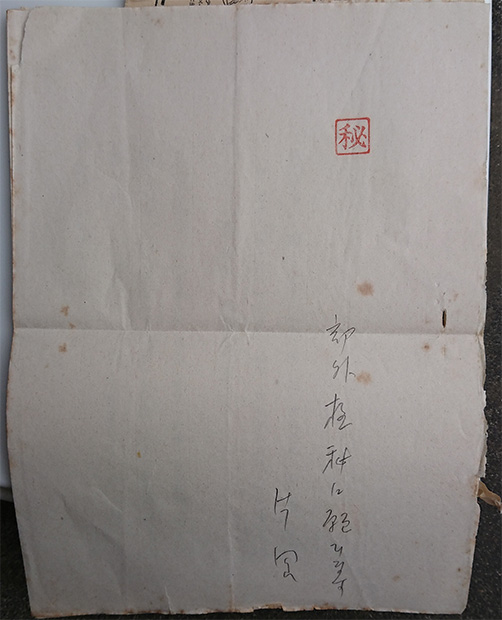 秘
部外極秘に願います
片岡